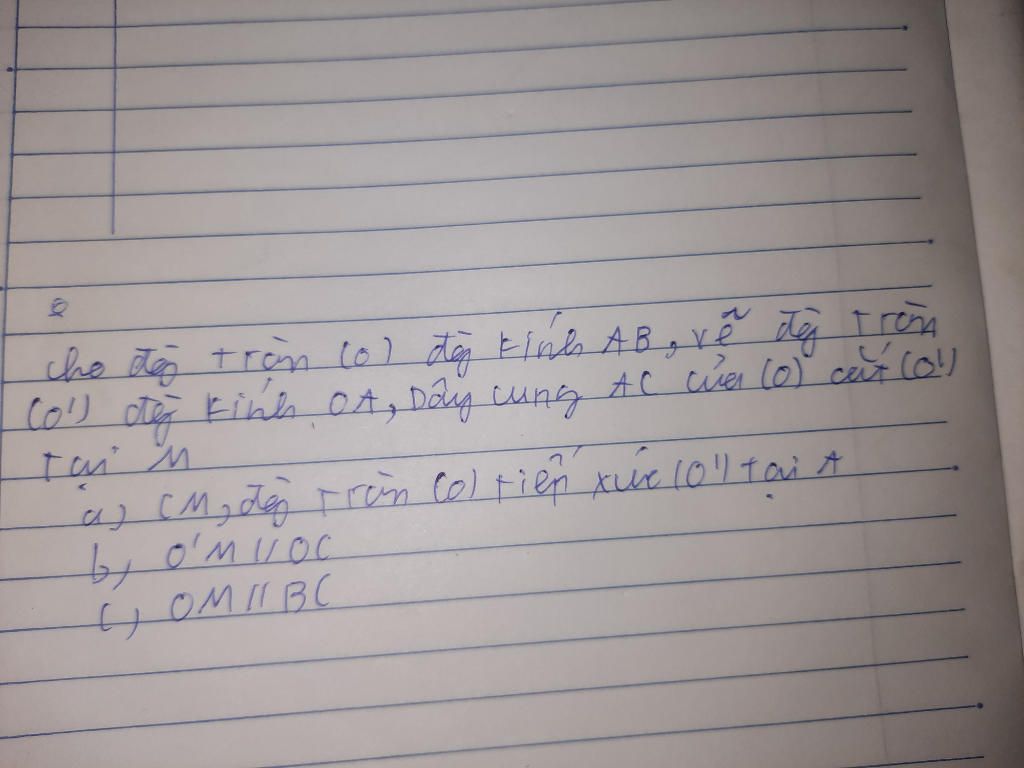 cho đg̀ tròn (O) đg̀ kính AB, vẽ đg̀ tròn
(O') đg̀ kính OA, Dây cung AC của (O) cắt (O')
tại M
a, CM, đg̀ tròn (O) tiếp xúc (O') tại A
b, O'M // OC
c, OM // BC